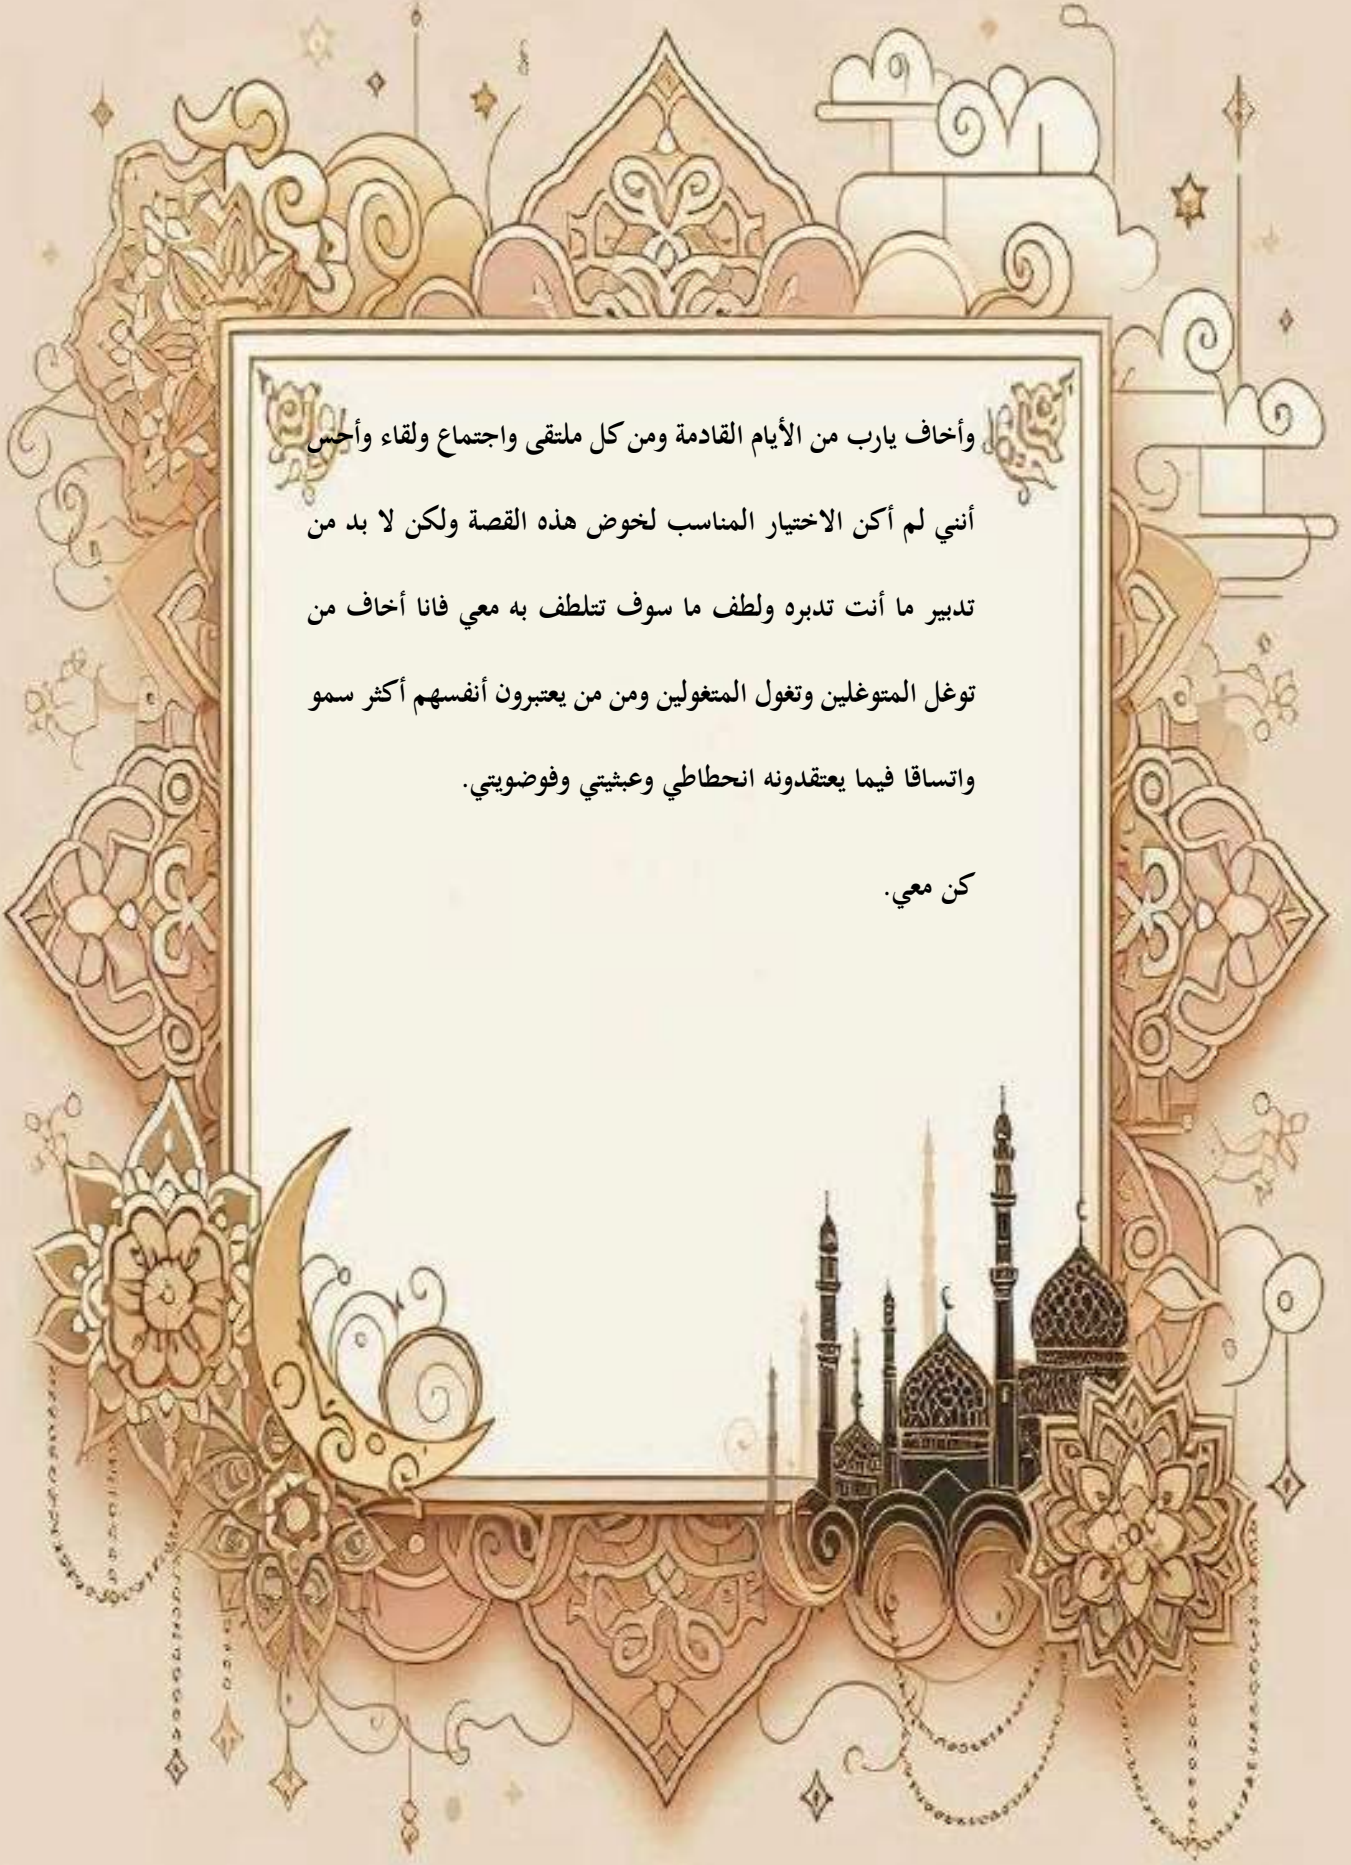 وأخاف يارب من الأيام القادمة ومن كل ملتقى واجتماع ولقاء وأحس
أنني لم أكن الاختيار المناسب لخوض هذه القصة ولكن لا بد من
تدبير ما أنت تدبره ولطف ما سوف تتلطف به معي فانا أخاف من
توغل المتوغلين وتغول المتغولين ومن من يعتبرون أنفسهم أكثر سمو
واتساقا فيما يعتقدونه انحطاطي وعبثيتي وفوضويتي.
كن معي.